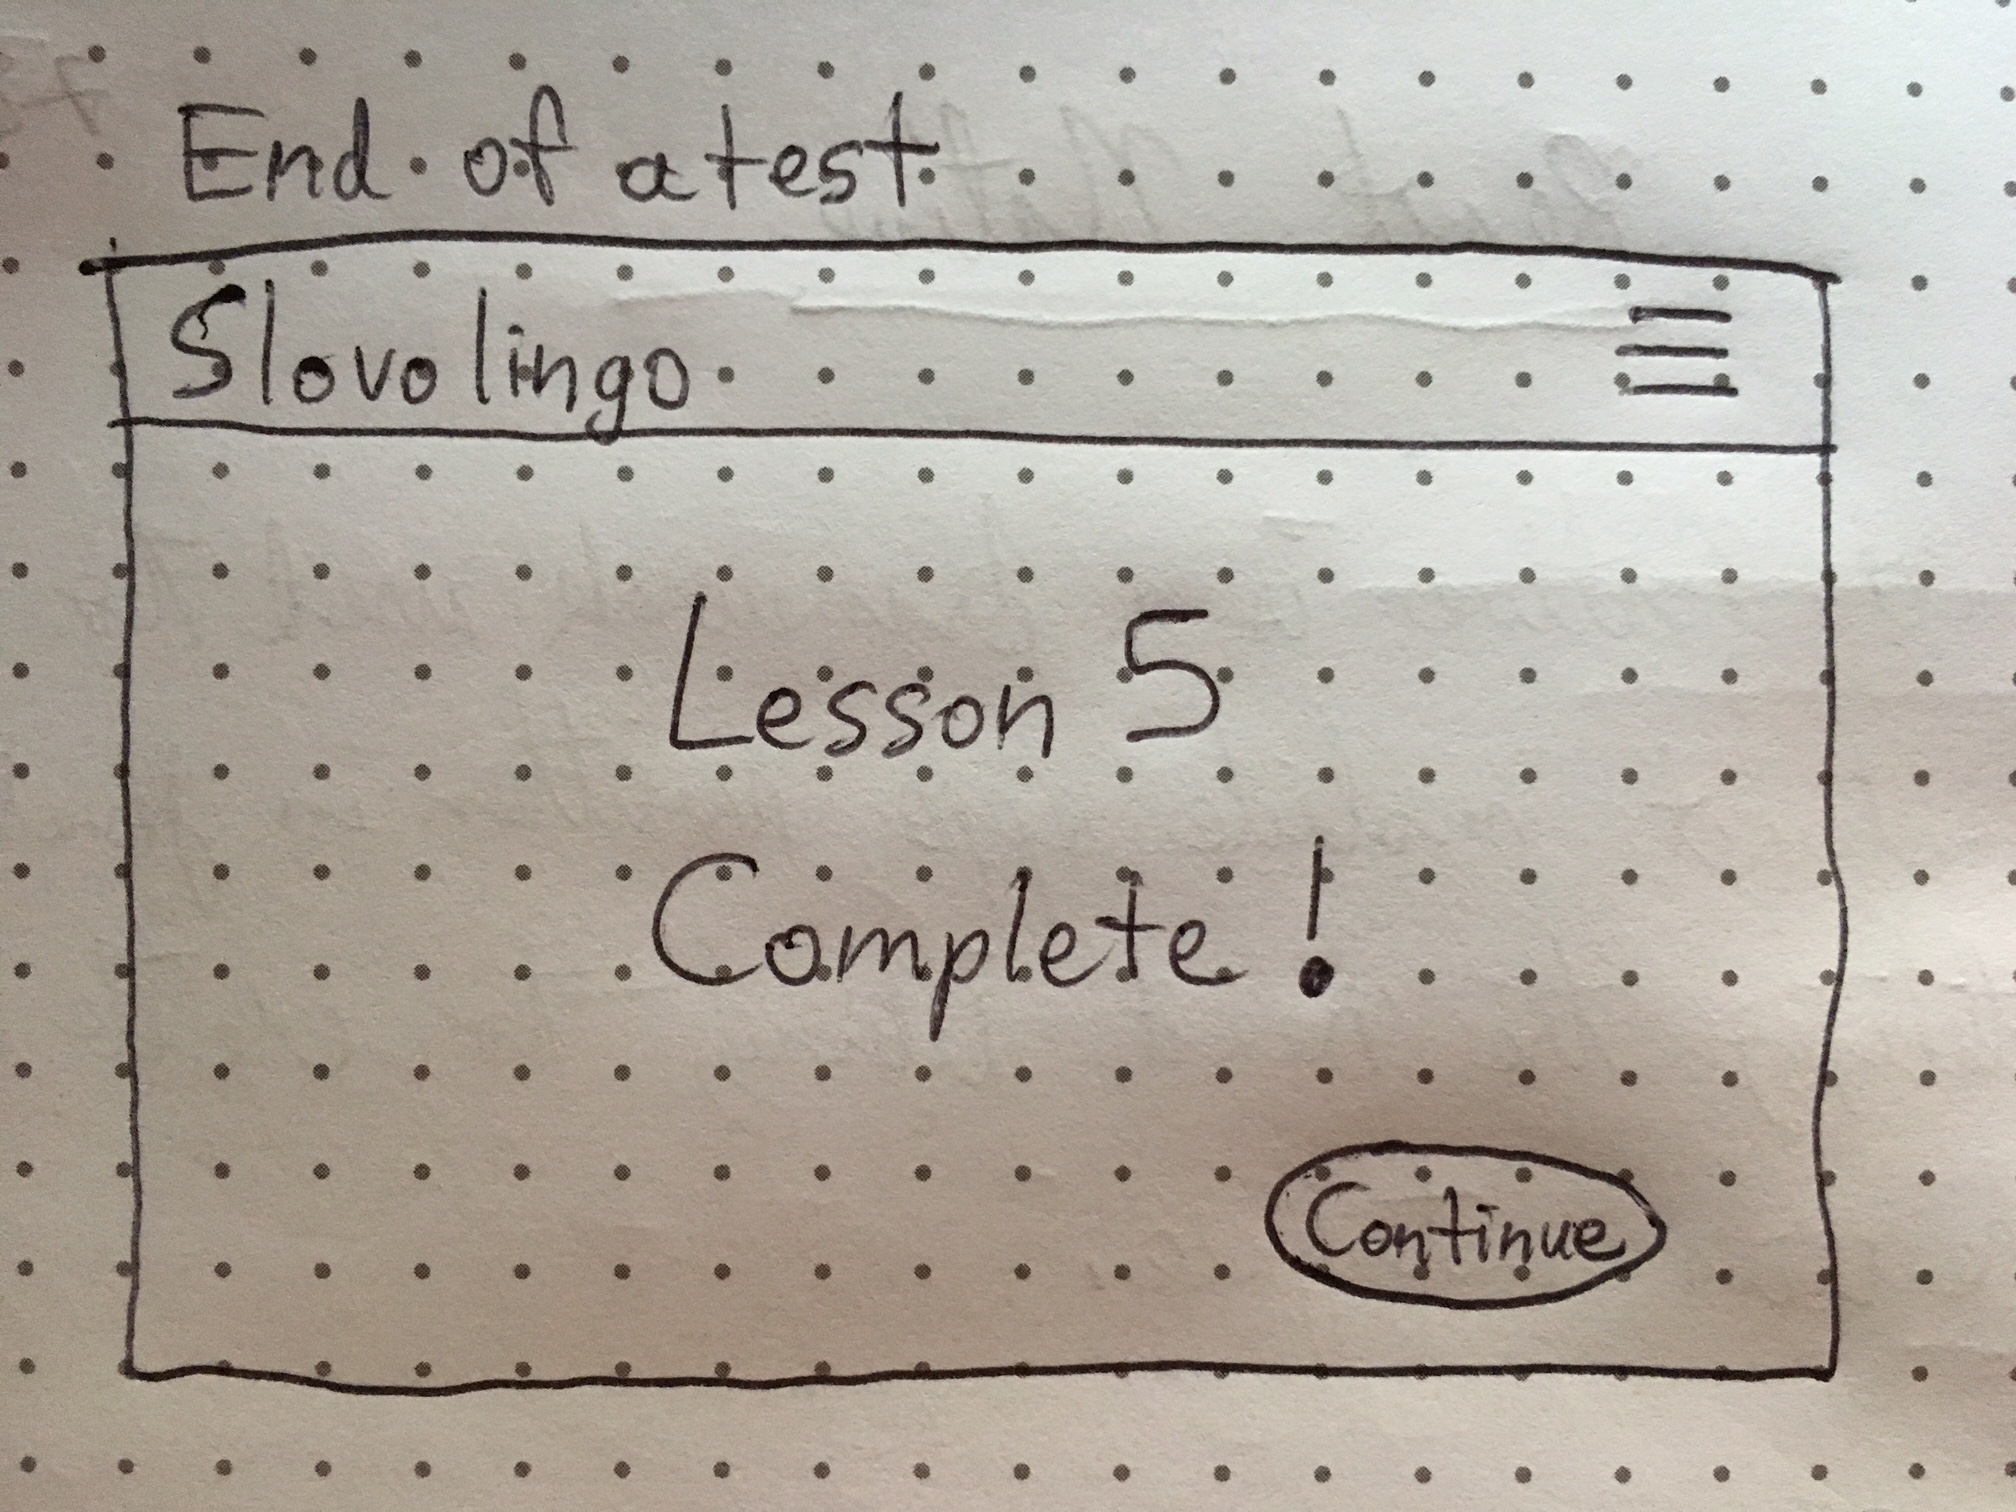 End of a test
Slovolingo
Lesson 5
Complete!
Continue